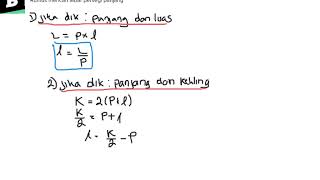 Rumus mencari lebar persegi panjang
1) jika dik : panjang dan luas
L = p x l
l = L/p
2) jika dik : panjang dan keliling
K = 2(p+l)
K/2 = p+l
l = K/2 - p